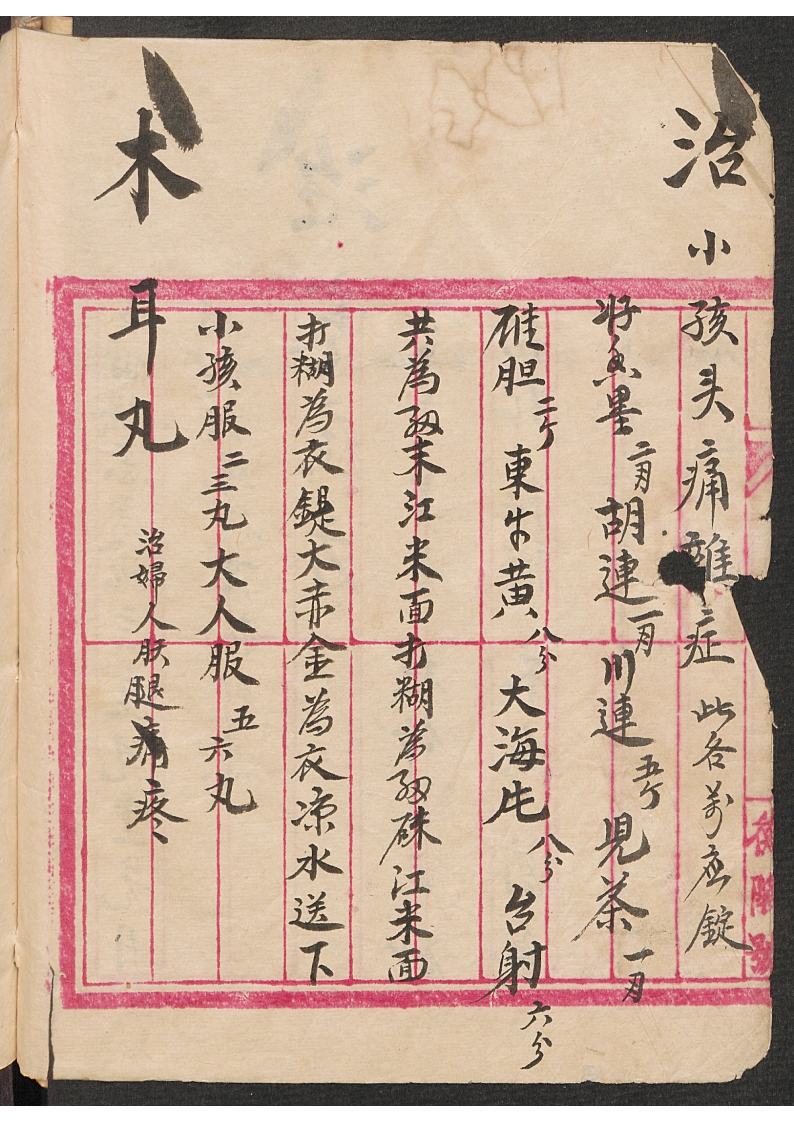 治小孩头痛難症 此名万应錠
好京墨 二月 胡連 一月 川連 五个 児茶 一月
碓胆 二个 東牛黄 八分 大海片 八分 台射 六分
共為細末江米面打糊為細硃江米面
打糊為衣鍉大赤金為衣凉水送下
小孩服二三丸大人服五六丸
木耳丸 治婦人肤腿痛疼